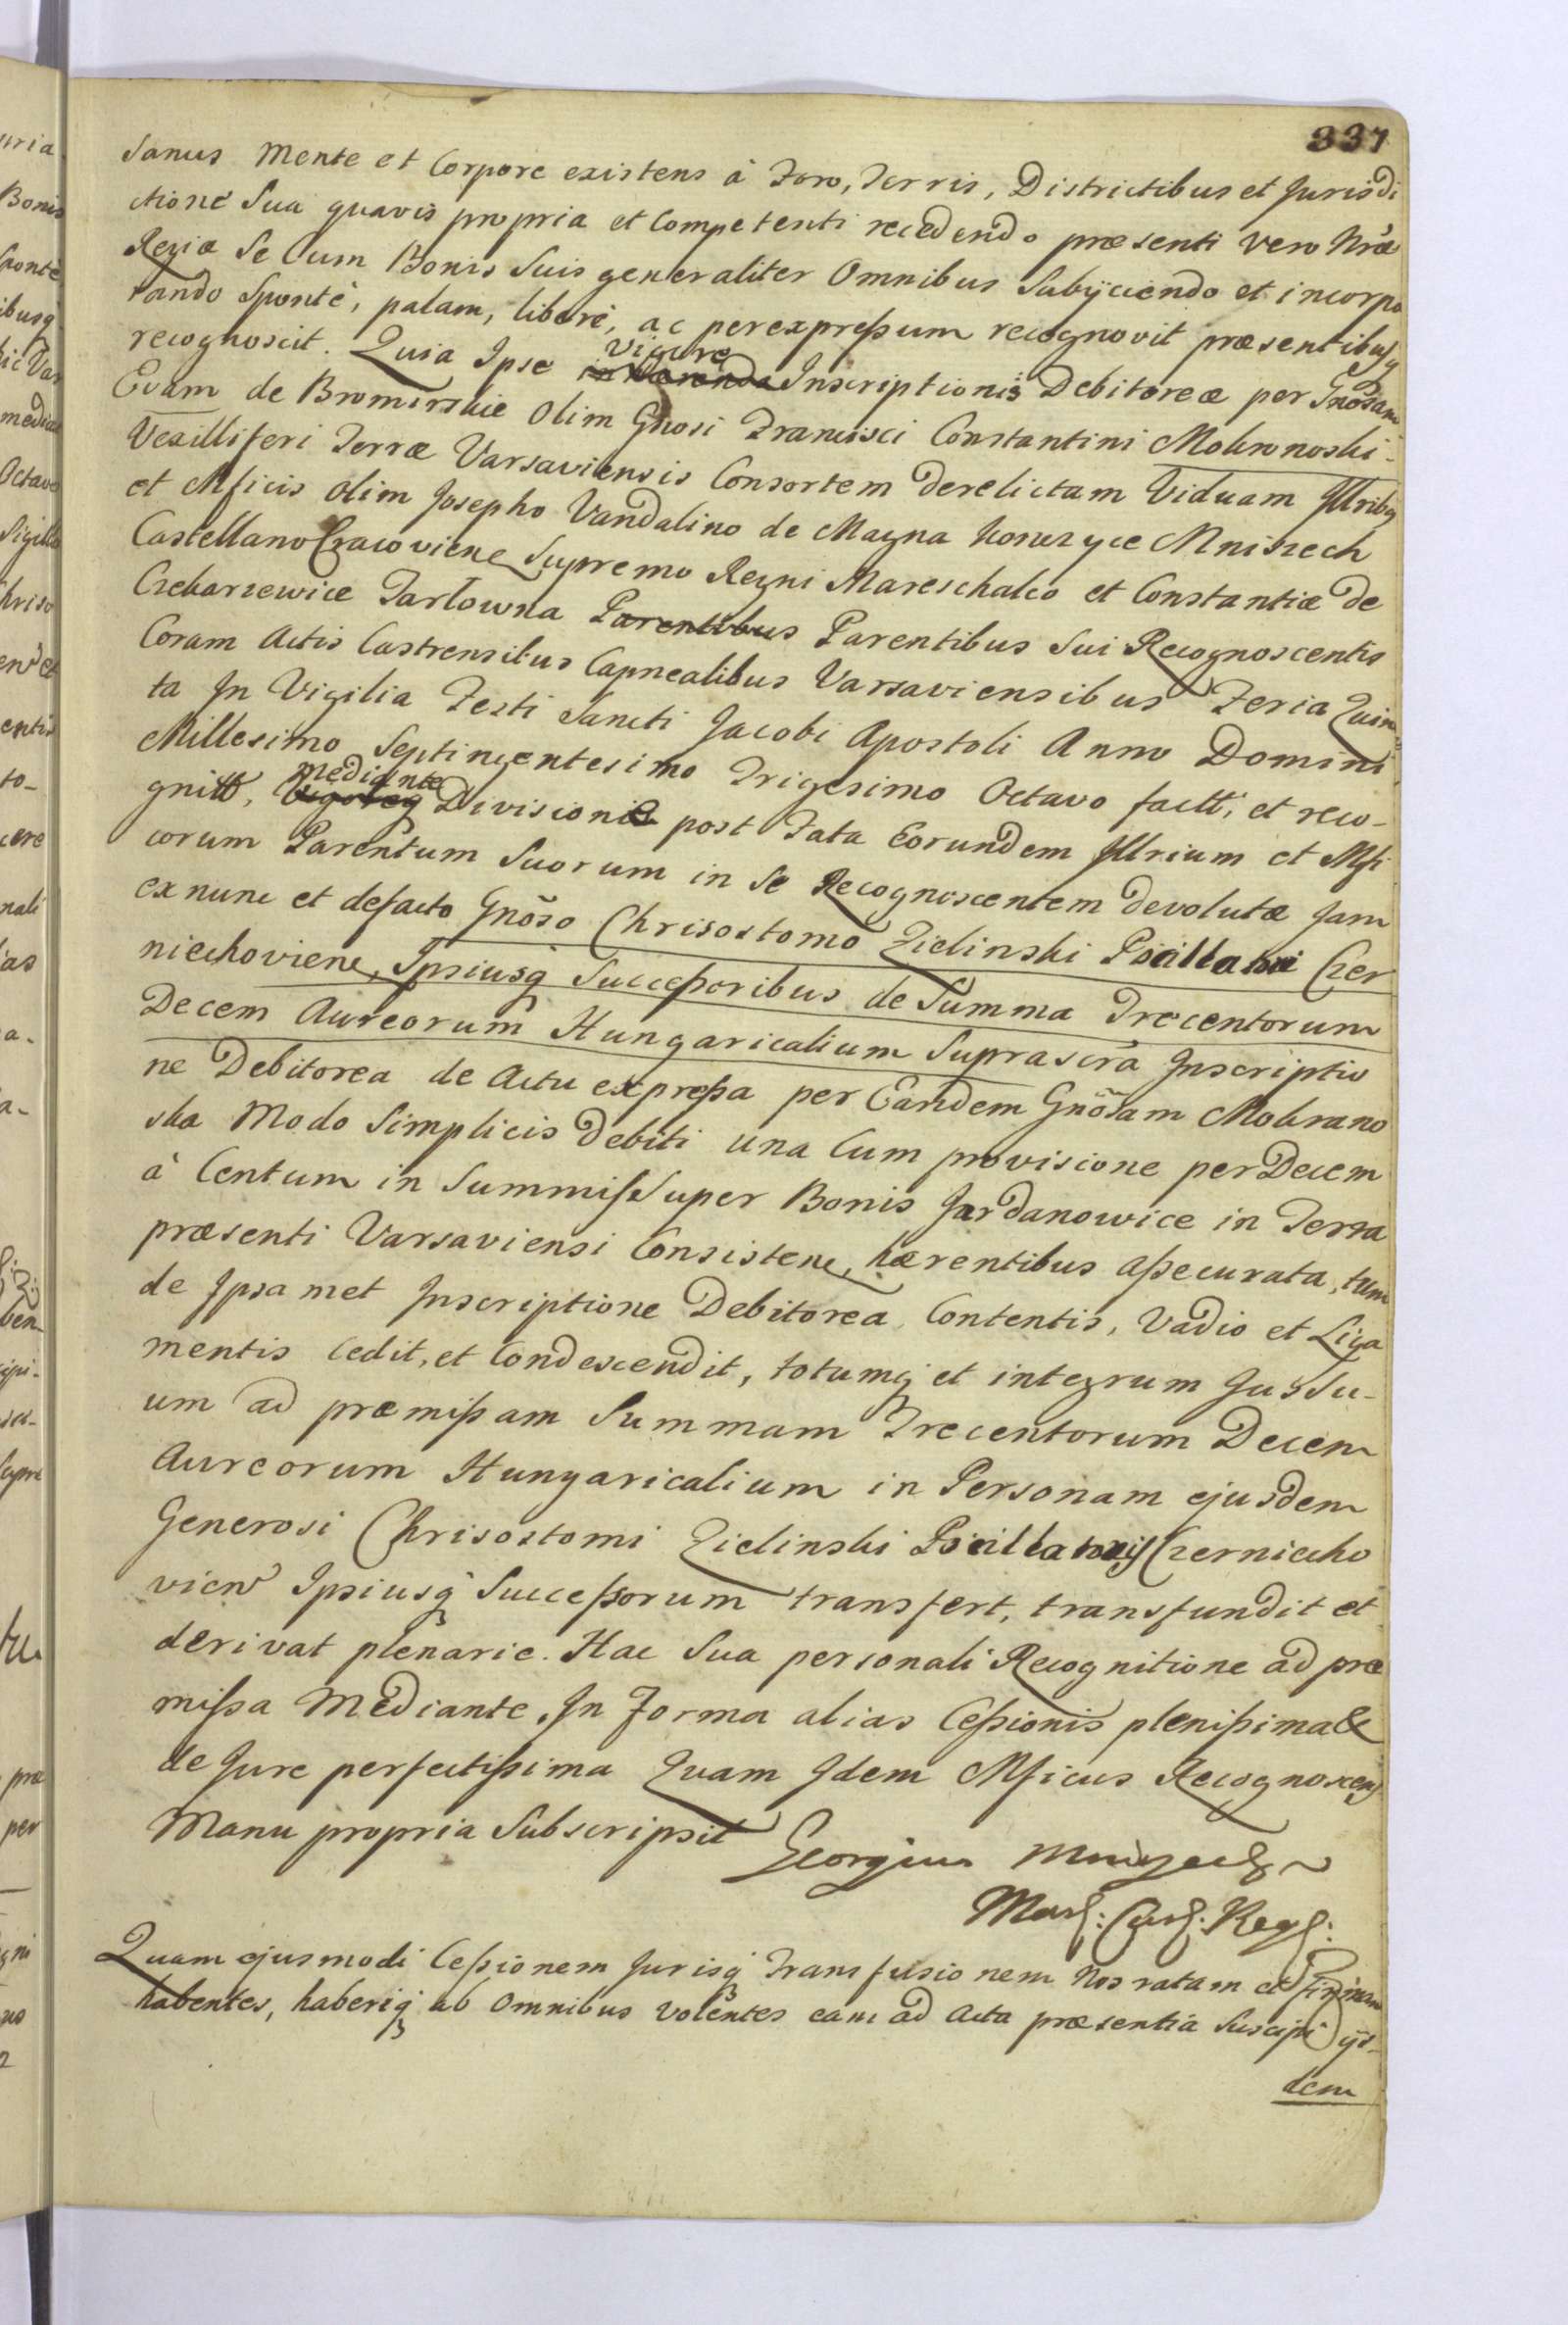 337
Sanus Mente et Corpore existens à Foro, Terris, Districtibus et Jurisdi
ctione Sua quavis propria et Competenti recedendo præsenti vero Nrǽ
Regiæ Se Cum Bonis Suis generaliter Omnibus Subyciendo et incorpo
rando Spontè, palam, liberè, ac per expreßum recognovit præsentibusq
recognoscit. Quia Ipse vigore Inscriptionis Debitoreæ per Gnosam
Evam de Bromirskie Olim Gnosi Francisci Constantini Mokronoski
Vexilliferi Terræ Varsaviensis Consortem derelictam Viduam Jllribq
et Mficis Olim Josepho Vandalino de Magna Konczyce Mniszech
Castellano Cracoviene Supremo Regni Mareschalco et Constantiæ de
Czekarzewice Tarłowna Parentibus Parentibus Sui Recognoscentis
Coram Actis Castrensibus Capnealibus Varsaviensibus Feria Quin
ta In Vigilia Festi Sancti Jacobi Apostoli Anno Domini
Millesimo Septingentesimo Trigesimo Octavo factť, et reco-
gnitť, mediante Divisione post Fata Eorundem Jllrium et Mfi
corum Parentum Suorum in Se Recognoscentem devolutæ Jam
ex nunc et defacto Gnõso Chrisostomo Zielinski Pocillatori Czer
niechoviene, Ipsiusq Succeßoribus de Summa Trecentorum
Decem Aureorum Hungaricalium Suprascrã Inscriptio
ne Debitorea de Actu expreßa per Eandem Gnõsam Mokrano
ska Modo Simplicis Debiti una Cum provisione per Decem
à Centum in Summis Super Bonis Jordanowice in Terra
præsenti Varsaviensi Consistene, hærentibus aßecurata, tum
de Jpsa met Jnscriptione Debitorea Contentis, Vadio et Liga
mentis Cedit, et Condescendit, totumq et integrum Jus Su-
um ad præmißam Summam Trecentorum Decem
Aureorum Hungaricalium in Personam ejusdem
Generosi Chrisostomi Zielinski Pocillatoris Czerniecho
vien Ipsiusq Succeßorum transfert, transfundit et
derivat plenarie. Hac Sua personali Recognitione ad præ
mißa Mediante, In Forma alias Ceßionis plenißima &
de Jure perfectißima Quam Jdem Mficus Recognoscens
Manu propria Subscripsit Georgius Mniszech
Mars: Cur: Reg:
Quam ejusmodi Ceßionem Jurisq Transfusionem Nos ratam et firmam
habentes, haberiq ab Omnibus volentes eam ad Acta præsentia Suscipi ijs-
dem